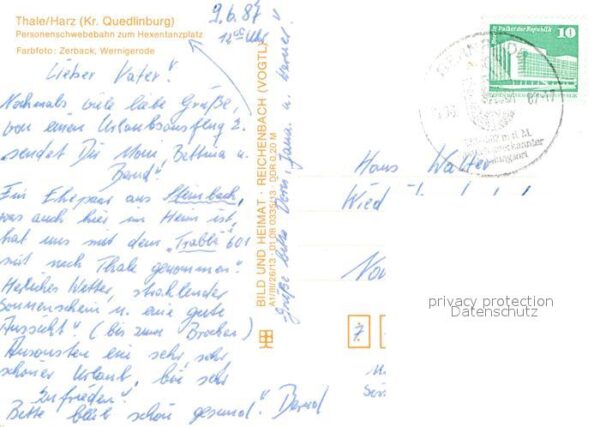 Thale/Harz (Kr. Quedlinburg)
Personenschwebebahn zum Hexentanzplatz
Farbfoto: Zerback, Wernigerode
9.6.87
12°° Uhr
Lieber Vater!
Nochmals viele liebe Grüße,
von einem Urlaubsausflug
sendet Dir Moni, Bettina u.
Bernd"
Ein Ehepaar aus Steinbach,
was auch hier im Heim ist,
hat uns mit dem "Trabbi 601
mit nach Thale genommen!
Herliches Wetter, strahlender
Sonnenschein u. eine gute
Aussicht! (bis zum Brocken)
Ansonsten ein sehr, sehr
schöner Urlaub, bin sehr
zufrieden!
Bitte bleib schön gesund! Bernd
BILD UND HEIMAT · REICHENBACH (VOGTL)
A1/III/26/13 · 01 08 0335/13 · DDR 0,20 M
Grüße bitte Doris, Jana u. Werner!
Palast der Republik
10
Hans Walter
Wied
7
privacy protection
Datenschutz